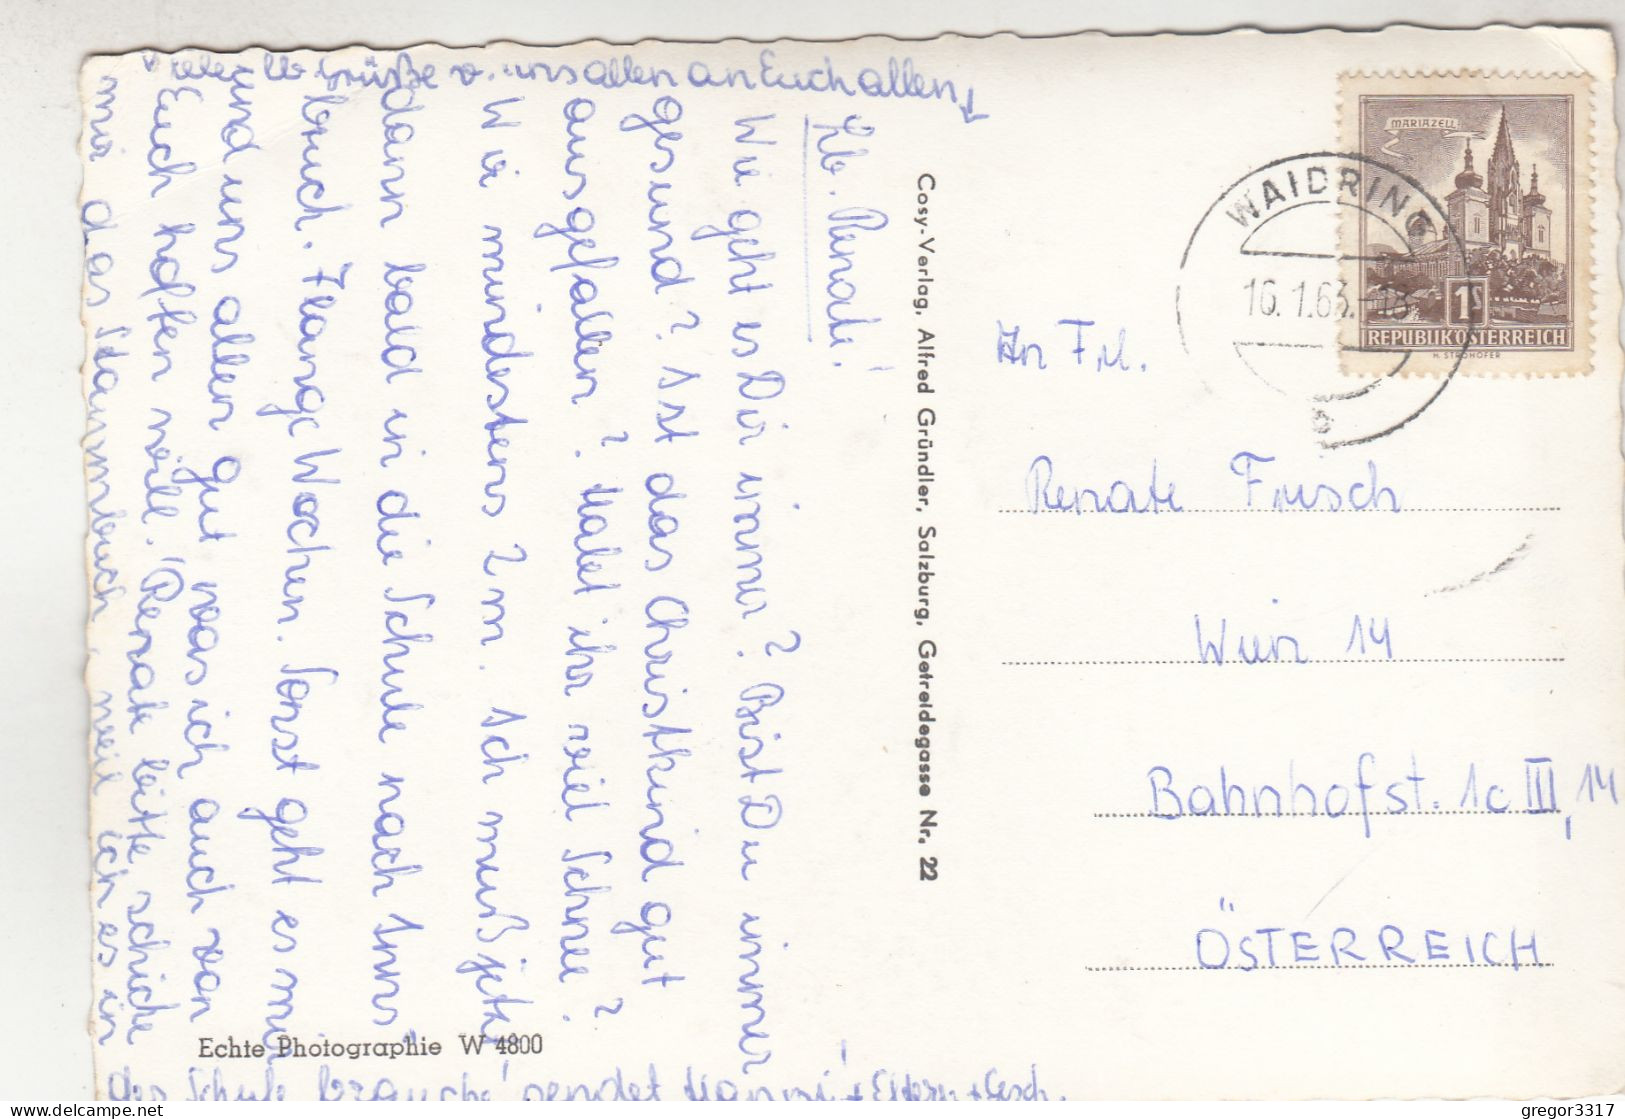 Viele lb. Grüße v. uns allen an Euch allen
Lb. Renate!
Wie geht es Dir immer? Bist Du immer
gesund? Ist das Christkind gut
ausgefallen? Habt ihr viel Schnee?
Wir mindestens 2 m. Ich muß jetzt
dann bald in die Schule nach Inns-
bruck. 7 lange Wochen. Sonst geht es mir
und uns allen gut was ich auch von
Euch hoffen will. Renate bitte schicke
mir das Stammbuch, weil ich es in
der Schule brauche! sendet Hanni + Eltern + Gesch.
Echte Photographie W 4800
Cosy-Verlag, Alfred Gründler, Salzburg, Getreidegasse Nr. 22
MARIAZELL
1S
REPUBLIK ÖSTERREICH
H. STROHOFER
WAIDRING
16. 1. 63.-18
An Frl.
Renate Frisch
Wien 14
Bahnhofst. 1c III, 14
ÖSTERREICH
delcampe.net
gregor3317